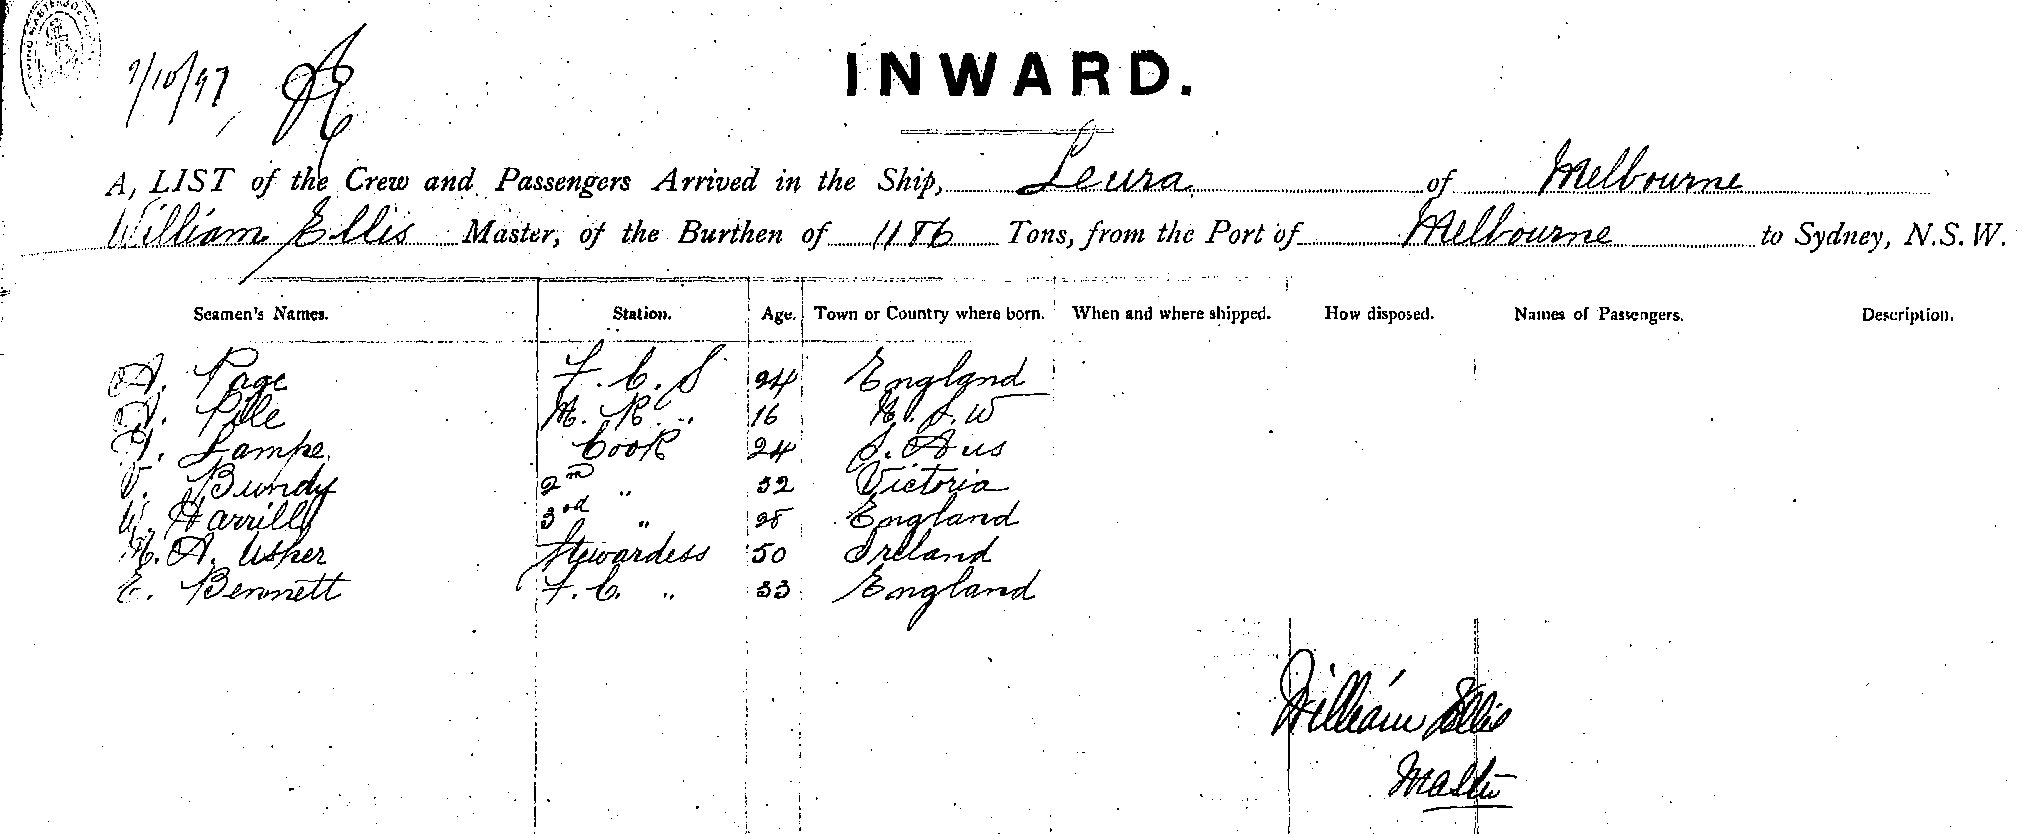 9/10/97
INWARD.
A, LIST of the Crew and Passengers Arrived in the Ship, Leura of Melbourne
William Ellis Master, of the Burthen of 1186 Tons, from the Port of Melbourne to Sydney, N.S.W.
Seamen's Names. Station. Age. Town or Country where born. When and where shipped. How disposed. Names of Passengers. Description.
A. Page F. C. S 24 England
A. Pile M. R. " 16 N. S. W
Lampe Cook 24 S. Aus
V. Bundy 2nd " 32 Victoria
W. Harrill 3rd " 28 England
M. A. Usher Stewardess 50 Ireland
E. Bennett F. C. " 33 England
William Ellis
Master